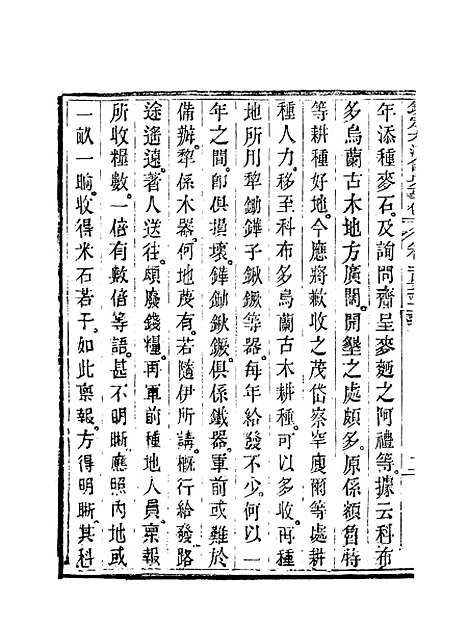 年添種麥石及詢問齎呈麥麵之阿禮等據云科布
多烏蘭古木地方廣闊開墾之處頗多原係額魯特
等耕種好地今應將歉收之茂岱察罕廋爾等處耕
種人力移至科布多烏蘭古木耕種可以多收再種
地所用犂鋤鏵子鍬鐝等器每年給發不少何以一
年之間卽俱損壞鏵鋤鍬鐝俱係鐵器軍前或難於
備辦犂係木器何地蔑有若隨伊所請槪行給發路
途遙遠著人送往頗廢錢糧再軍前種地人員稟報
所收糧數一倍有數倍等語甚不明晰應照內地或
一畝一晌收得米石若干如此稟報方得明晰其科